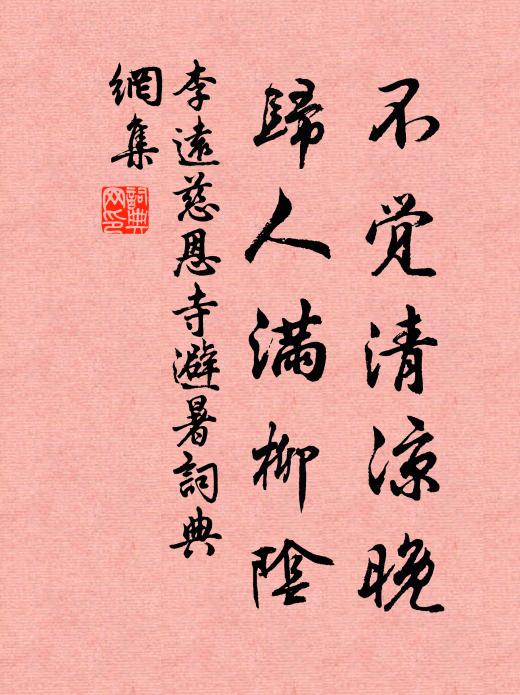 不觉清凉晚
歸人满柳陰
李遠慈恩寺避暑詞典
網集
詞典網印